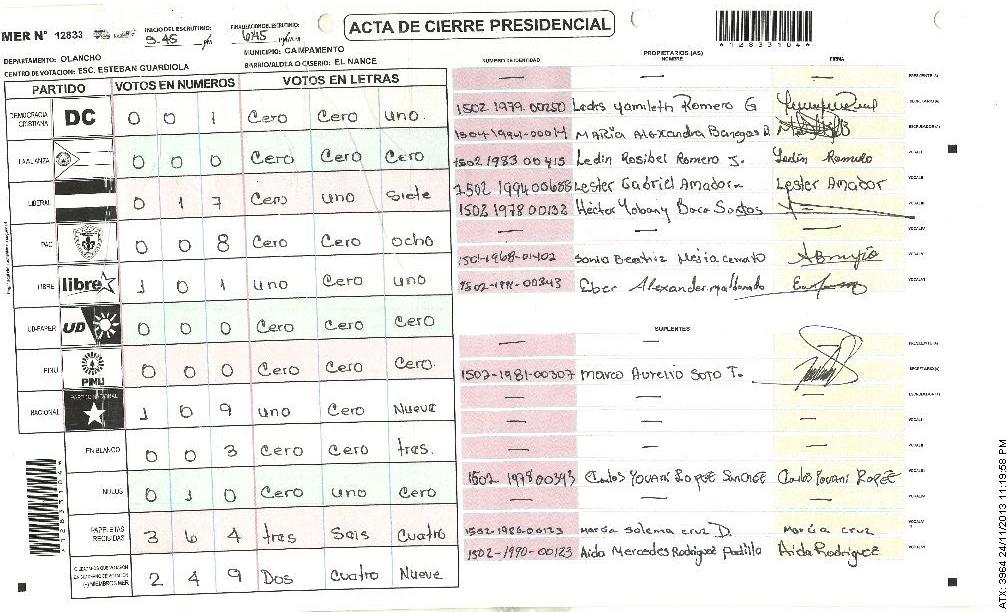 ACTA DE CIERRE PRESIDENCIAL
*128331046*
MER N° 12833
INICIO DEL ESCRUTINIO:
FINALIZACION DE ESCRUTINIO:
DEPARTAMENTO: OLANCHO
MUNICIPIO: CAMPAMENTO
CENTRO DE VOTACION: ESC. ESTEBAN GUARDIOLA
BARRIO/ALDEA O CASERIO: EL NANCE
PARTIDO VOTOS EN NUMEROS VOTOS EN LETRAS
DEMOCRACIA CRISTIANA DC 0 0 1 Cero Cero uno.
LA ALIANZA 0 0 0 Cero Cero Cero
LIBERAL 0 1 7 Cero uno Siete
PAC 0 0 8 Cero Cero ocho
LIBRE libre 1 0 1 uno Cero uno
UD-FAPER UD 0 0 0 Cero Cero Cero
PINU PINU 0 0 0 Cero Cero Cero.
NACIONAL PARTIDO NACIONAL 1 0 9 uno Cero Nueve
EN BLANCO 0 0 3 Cero Cero tres.
NULOS 0 1 0 Cero uno Cero
PAPELETAS RECIBIDAS 3 6 4 tres Seis Cuatro
2 4 9 Dos Cuatro Nueve
NUMERO DE IDENTIDAD PROPIETARIOS (AS) NOMBRE FIRMA
1502 1979 00250 Ledis Yamileth Romero G
1504 1994-00014 Maria Alexandra Banegas
1502 1983 00415 Ledin Rosibel Romero J. Ledin Romero
Lester Gabriel Amador Lester Amador
1502 1978 00132 Héctor Yobany Baca Santos
1501-1968-01402 Sonia Beatriz
1502-1991-00343 Eber Alexander maldonado
SUPLENTES
1502-1981-00307 Marco Aurelio Soto T.
1502 1978 00393 Carlos Yovani Lopez Carlos Yovani Lopez
1502-1986-00123 Maria Solema Cruz D. Maria Cruz
1502-1990-00123 Aida Mercedes Rodriguez Padilla Aida Rodriguez
ATX: 3964 24/11/2013 11:19:58 PM